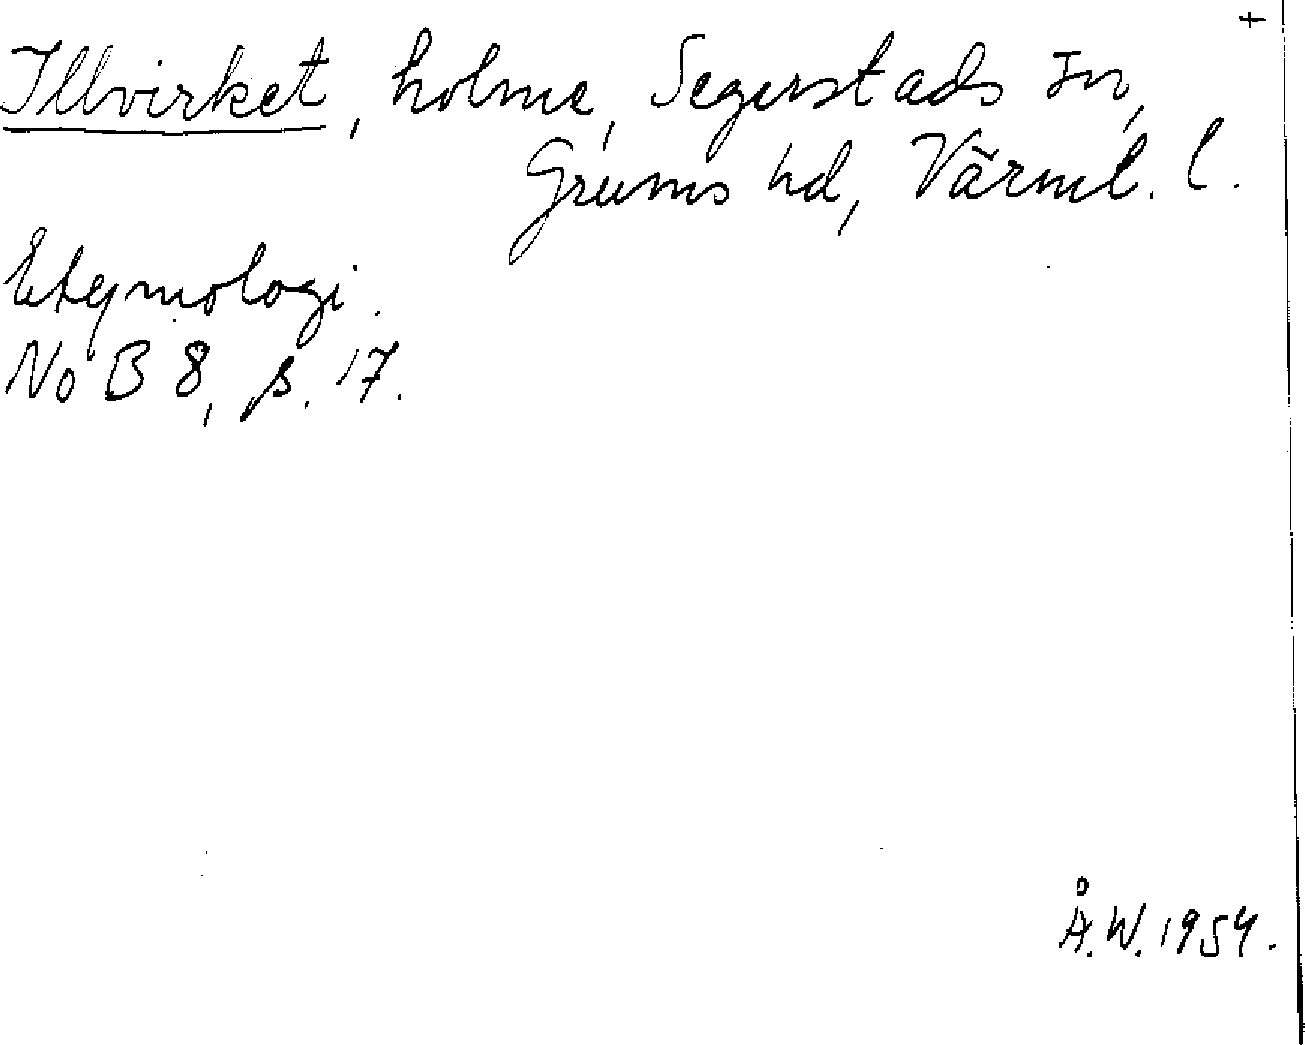 +
Illvirket, holme, Segerstads sn,
Grums hd, Värml. l.
Etymologi.
NoB 8, s. 17.
Å.W. 1954.